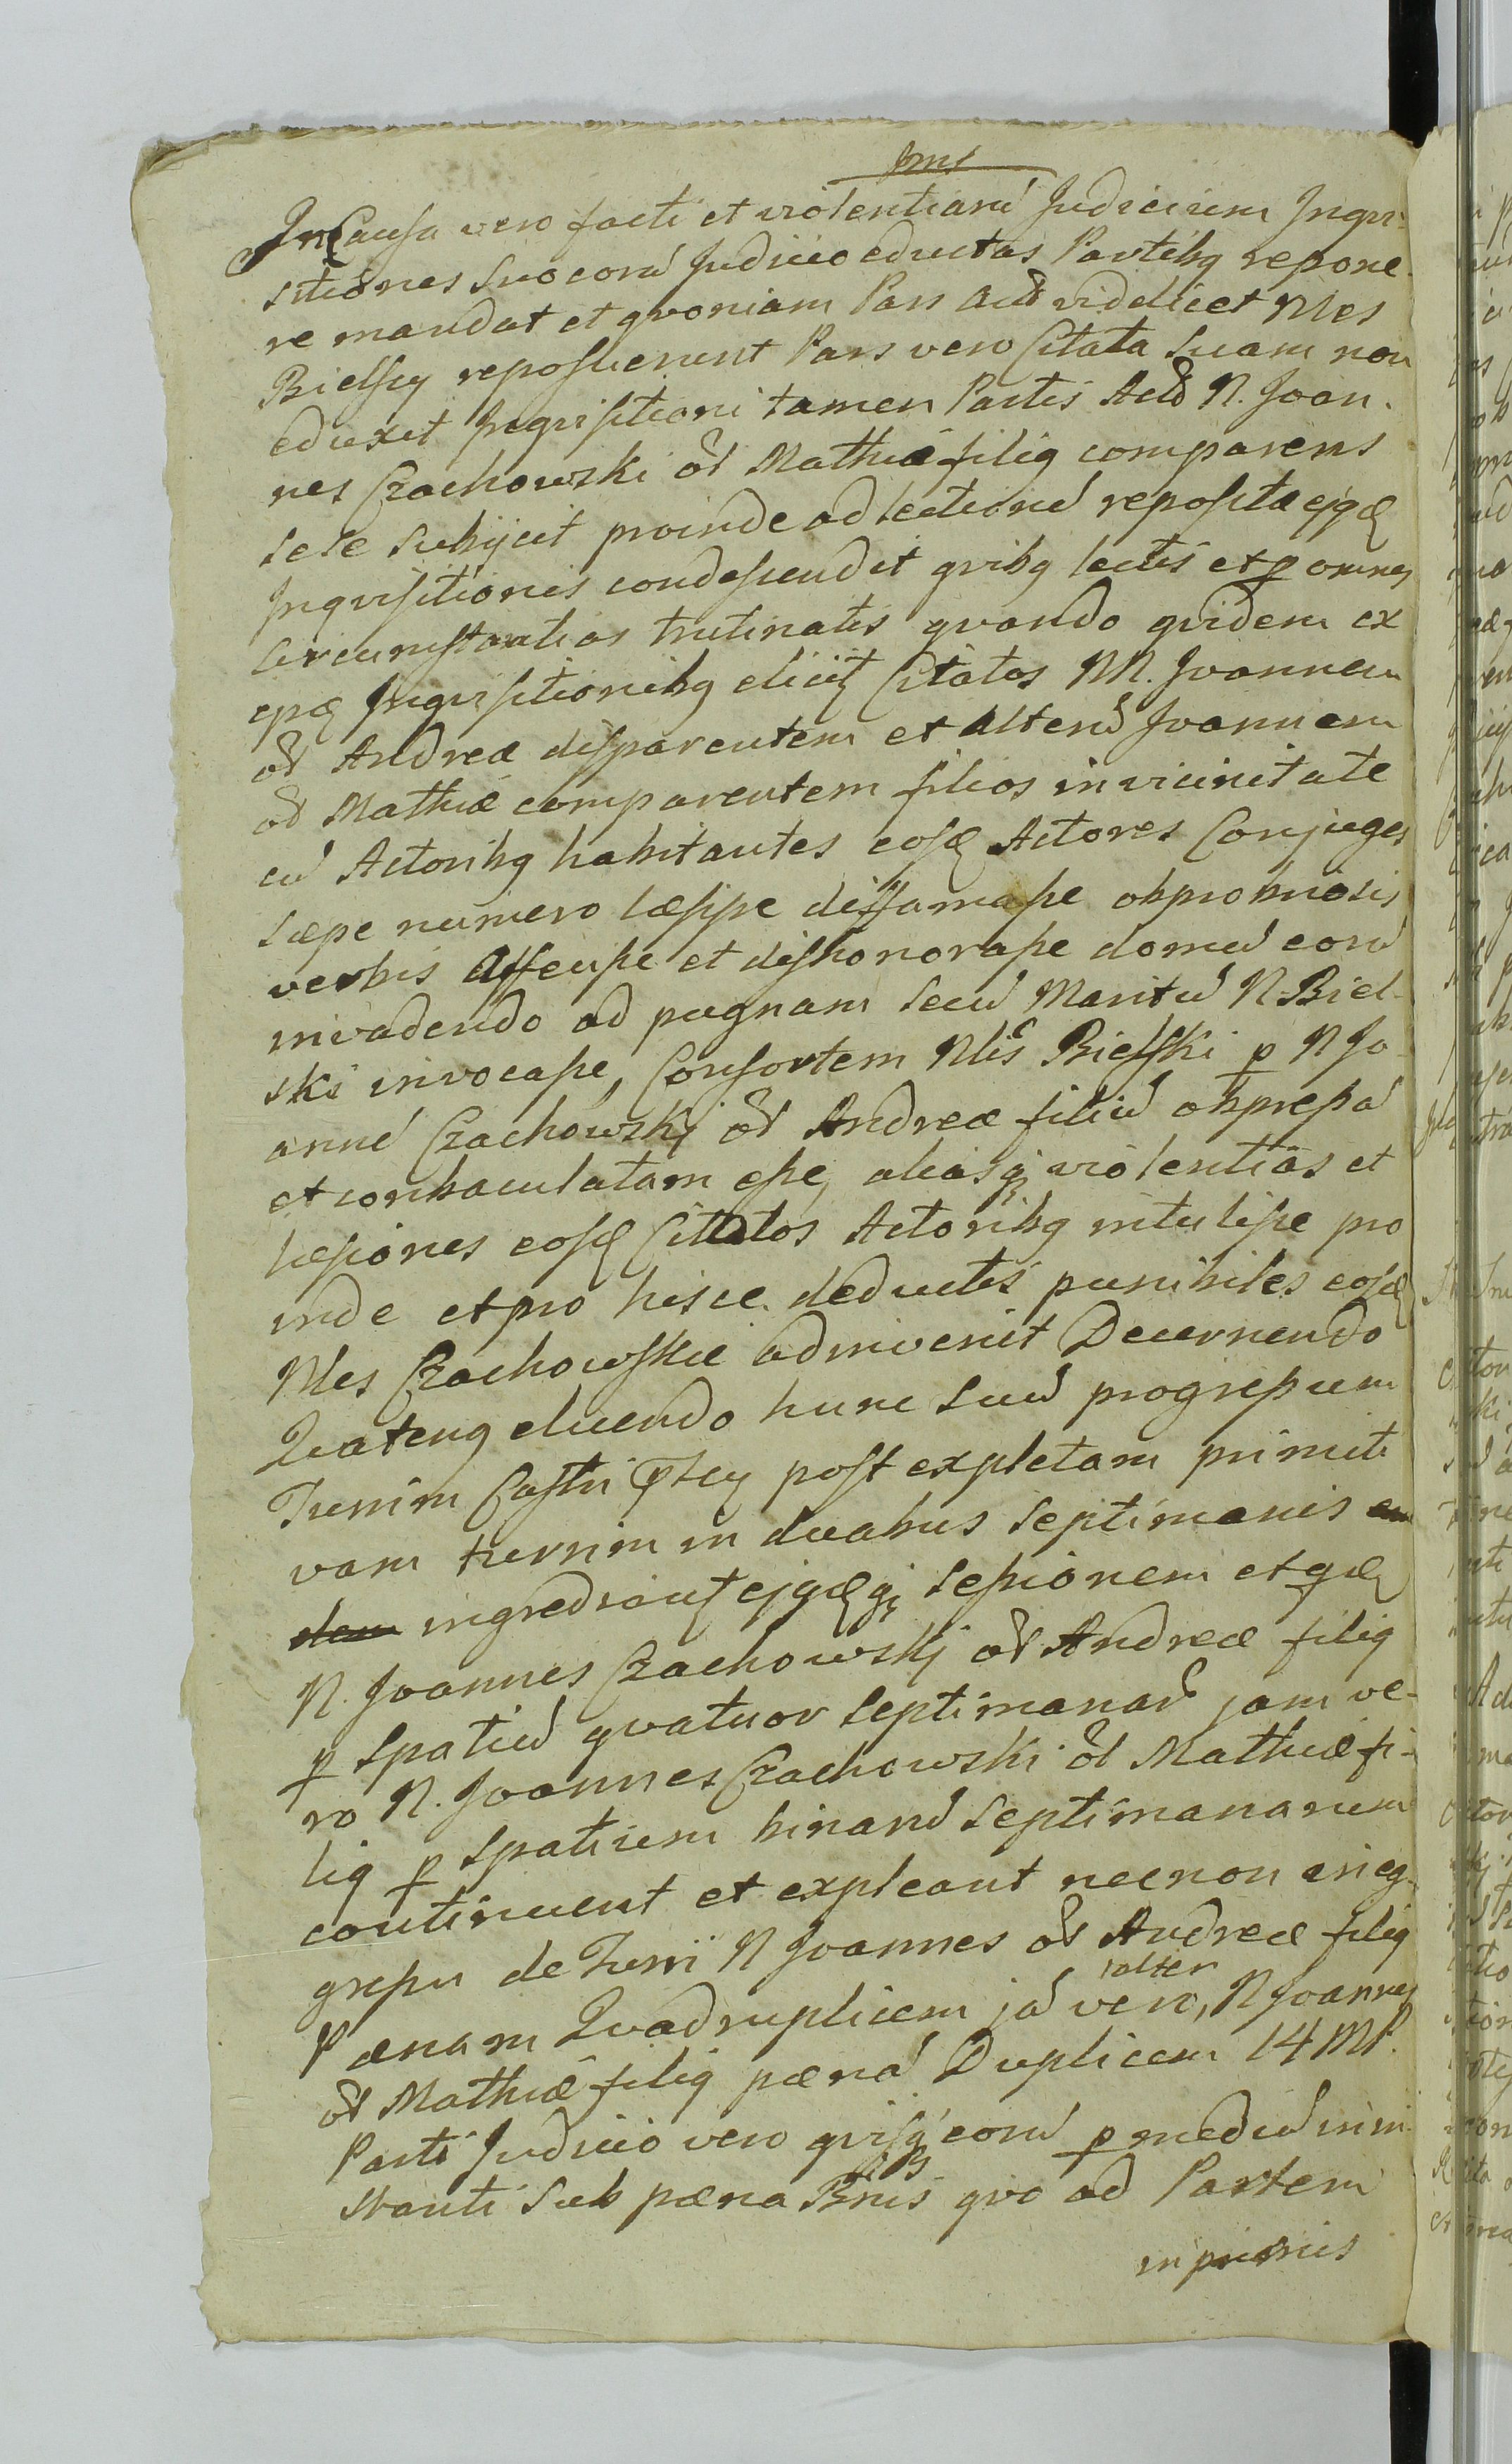 In Causa vero facti et violentiarũ Judicium Inqvi-
sitiones suo corã Judicio eductas Partibq repone-
re mandat et qvoniam Pars Act videlicet Nles
Bielscy reposuerunt Pars vero Citata suam non
eduxit Inqvisitioni tamen Partis Act N. Joan-
nes Czachowski ol Mathiæ filiq comparens
sese subijcit proinde ad lectionẽ reposita ejqd
Inqvisitionis condescendit qvibq lectis et p omnes
circumstantias trutinatis qvando qvidem ex
Inqvisitionibq elicit Citatos NN. Joannem
ol Andreæ disparentem et alterũ Joannem
ol Mathiæ comparentem filios in vicinitate
cũ Actoribq habitantes eosd Actores Conjuges
sæpe numero læsisse diffamasse obprobriosis
verbis affecisse et dishonorasse domũ eorũ
invadendo ad pugnam secũ Maritũ N. Biel-
ski invocasse, Consortem Nlis Bielski p N Jo-
annẽ Czachowskj ol Andreæ filiũ obpressã
et conbaculatam esse, aliasq violentias et
læsiones eosd Citatos Actoribq intulisse pro
inde et pro hisce deductis punibiles eosd
Nles Czachowskie adinvenit Decernendo
Qvatenq eluendo hunc suũ progressum
Turrim Castri post expletam primiti
vam turrim in duabus septimanis
ingrediant ejqdq sessionem et qd
N. Joannes Czachowskj ol Andreæ filiq
p spatiũ qvatuor septimanarũ jam ve-
ro N. Joannes Czachowski ol Mathiæ fi-
liq p spatium binarũ septimanarum
continuent et expleant necnon in eg-
gressu de Turri N Joannes ol Andreæ filiq
Pænam Qvadruplicem jã vero, alter N Joannes
ol Mathiæ filiq pænã Duplicem 14 MP.
Parti Judicio vero qvisq eorũ p mediũ inni
strauti sub pæna Bnis qvo ad Partem
in primis